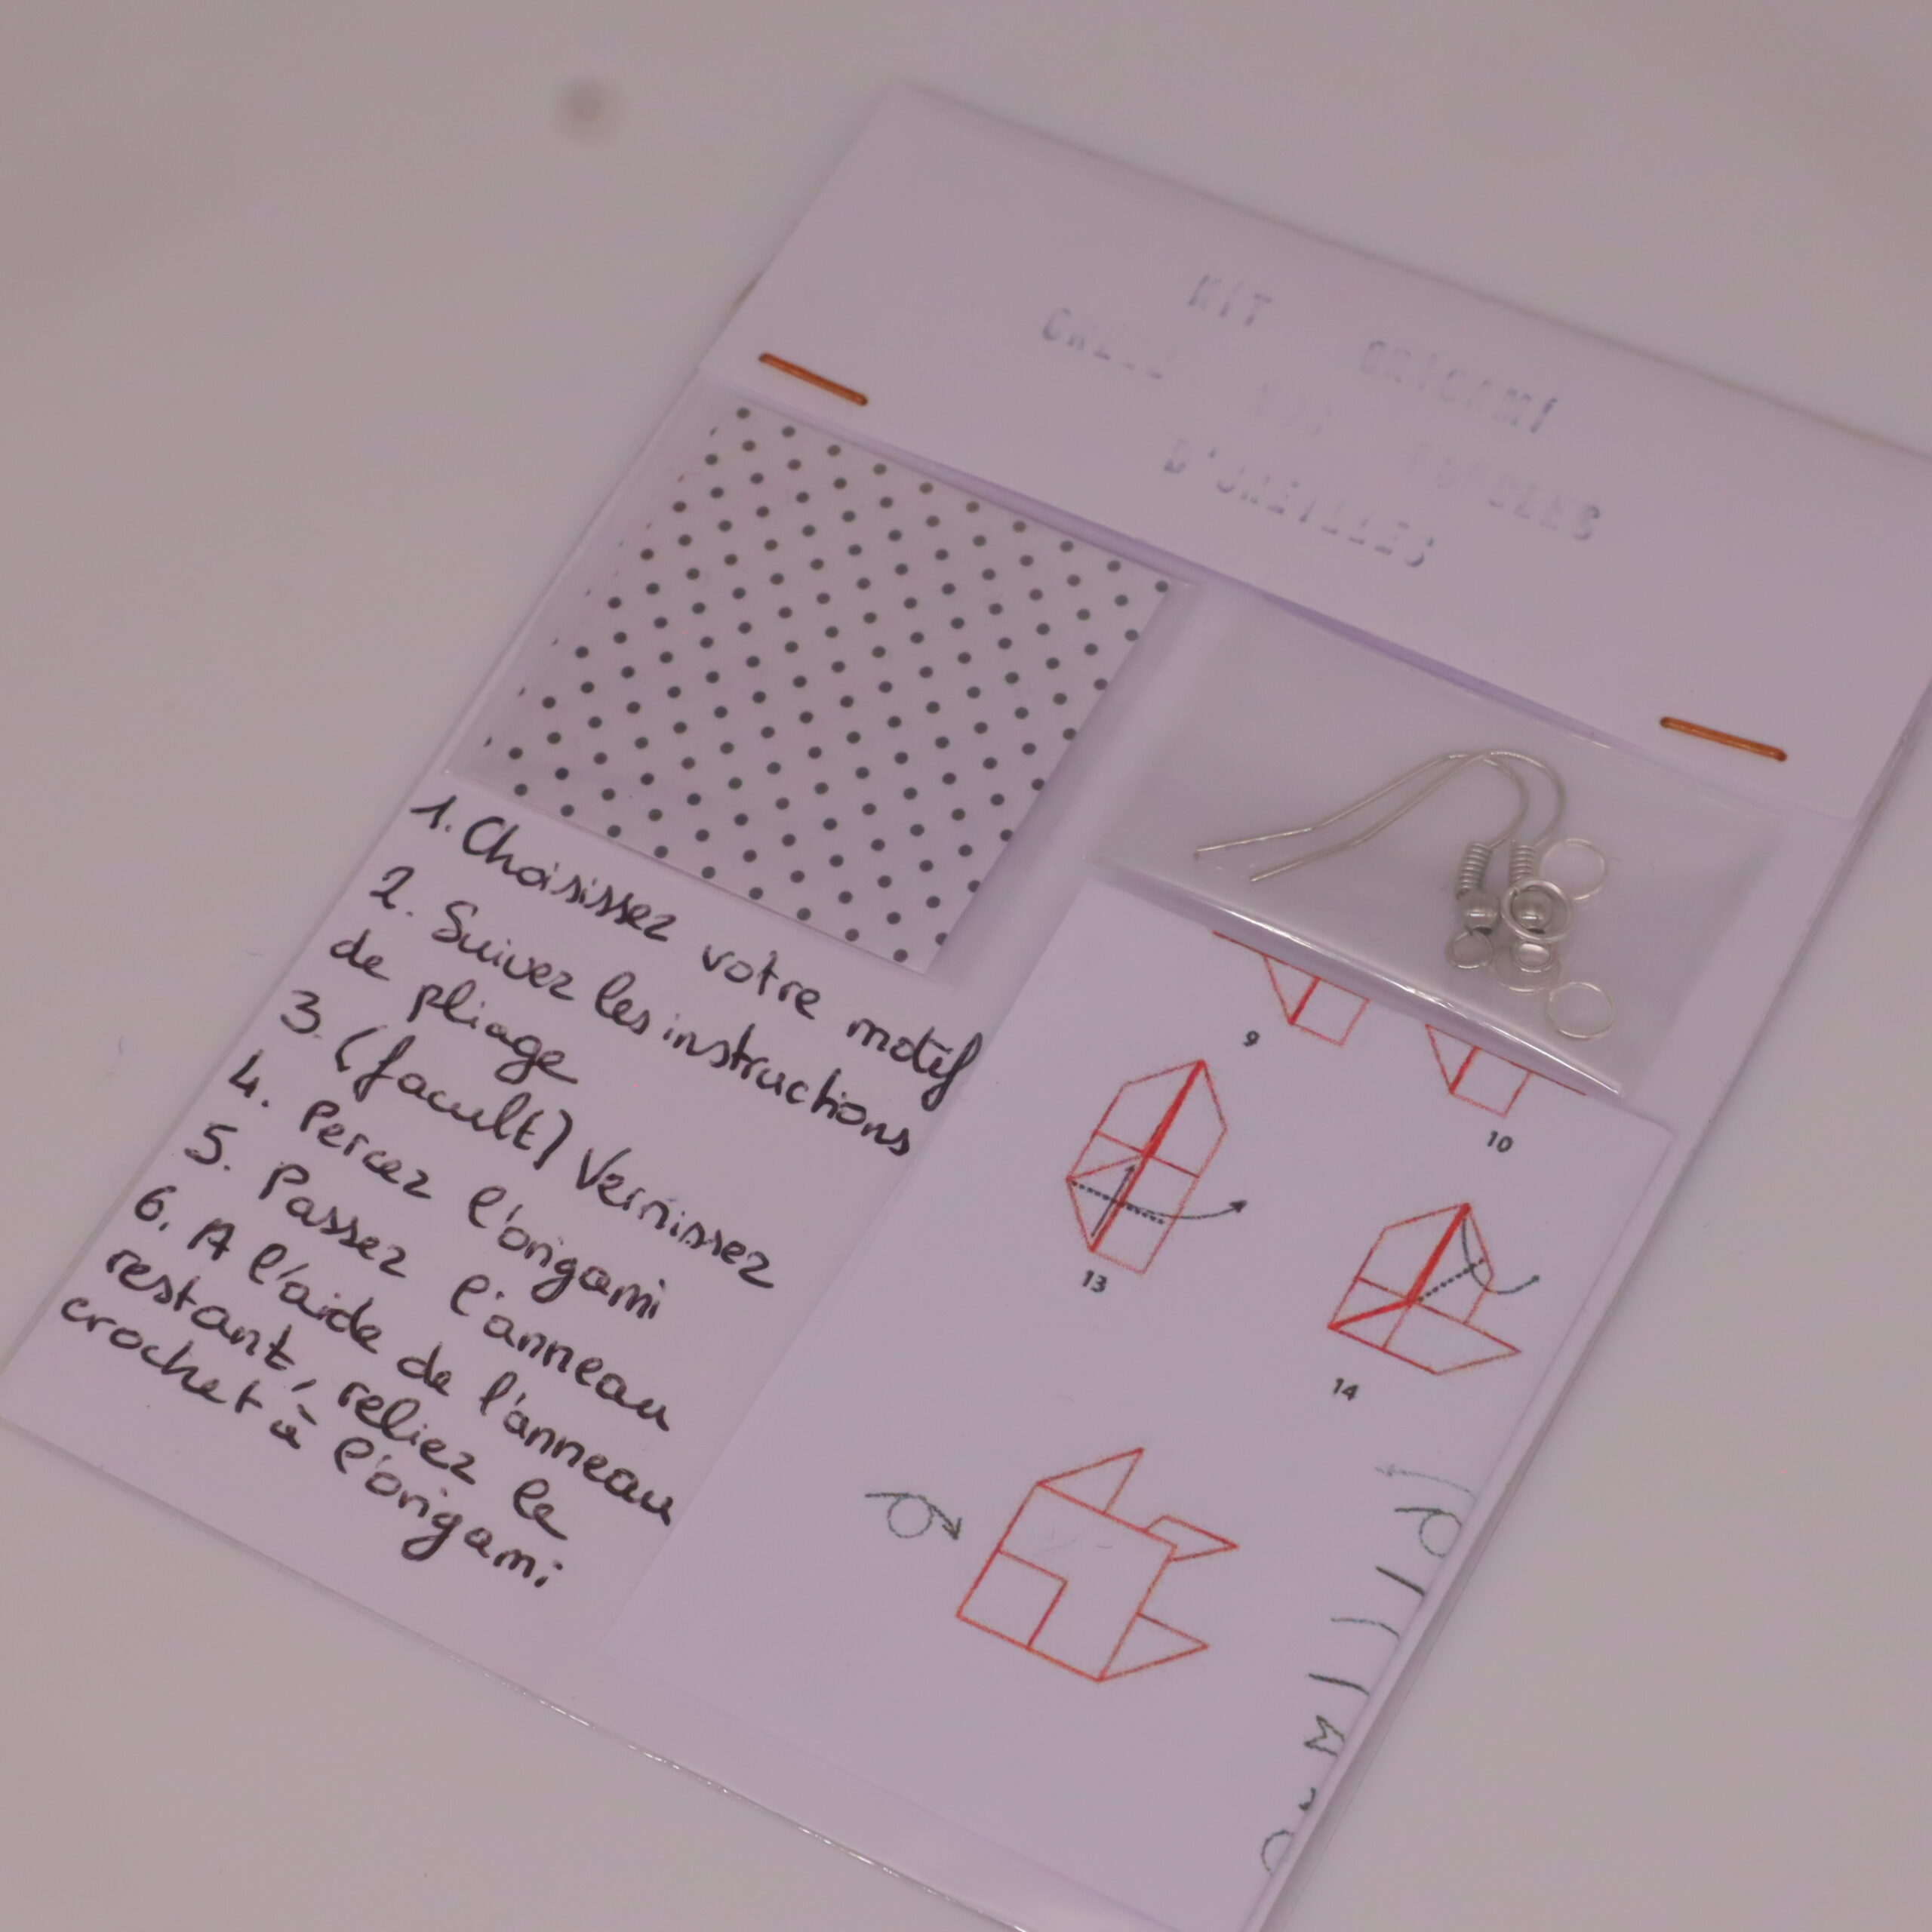 KIT ORIGAMI
CRÉEZ VOS BOUCLES
D'OREILLES
1. Choisissez votre motif
2. Suivez les instructions
de pliage
3. (facult) Vernissez
4. Percez l'origami
5. Passez l'anneau
6. A l'aide de l'anneau
restant, reliez le
crochet à l'origami
9
10
13
14